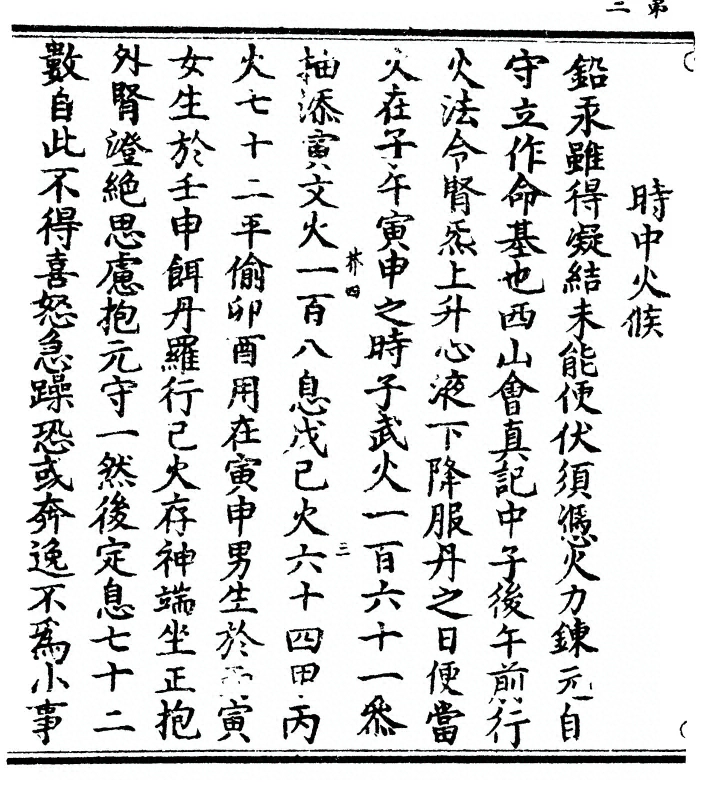 第二
時中火候
鉛汞雖得凝結未能便伏須憑火力鍊元自
守立作命基也西山會真記中子後午前行
火法令腎炁上升心液下降服丹之日便當
火在子午寅申之時子武火一百六十一添
芥四
抽添寅文火一百八息戊己火六十四甲丙
三
火七十二平偷卯酉用在寅申男生於寅
女生於壬申餌丹羅行己火存神端坐正抱
外腎澄絕思慮抱元守一然後定息七十二
數自此不得喜怒急躁恐或奔逸不爲小事